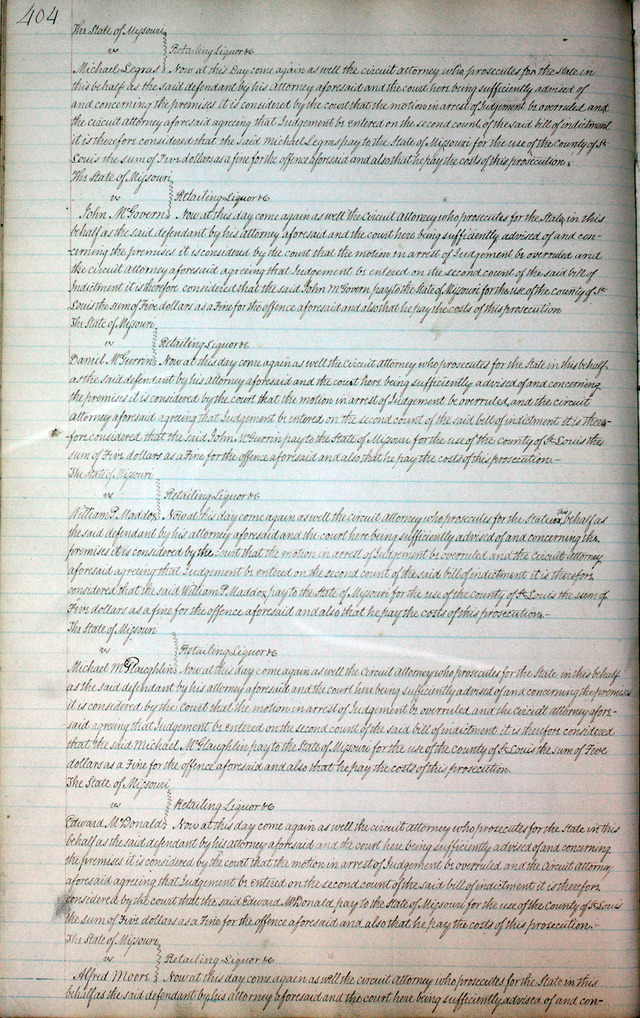 404
The State of Missouri
vs
Retailing Liquor &c
Michael Legras Now at this Day come again as well the circuit attorney who prosecutes for the State in
this behalf as the said defendant by his Attorney aforesaid and the court here being sufficiently advised of
and concerning the premises it is considered by the court that the motion in arrest of Judgement be overruled, and
the circuit Attorney aforesaid agreeing that Judgement be entered on the second count of the said bill of indictment
it is therefore considered that the said Michael Legras pay to the State of Missouri for the use of the county of St
Louis the sum of Five dollars as a fine for the offence aforesaid and also that he pay the costs of this prosecution.
The State of Missouri
vs
Retailing Liquor &c
John McGovern Now at this day come again as well the Circuit Attorney who prosecutes for the State in this
behalf as the said defendant by his attorney aforesaid and the court here being sufficiently advised of and con-
cerning the premises it is considered by the court that the motion in arrest of Judgement be overruled and
the circuit Attorney aforesaid agreeing that Judgement be entered on the second count of the said bill of
Indictment it is therefore considered that the said John McGovern pay to the State of Missouri for the use of the county of St
Louis the sum of Five dollars as a Fine for the offence aforesaid and also that he pay the costs of this prosecution
The State of Missouri
vs
Retailing Liquor &c
Daniel McGurrin Now at this day come again as well the Circuit Attorney who prosecutes for the State in this behalf
as the said defendant by his attorney aforesaid and the court here being sufficiently advised of and concerning
the premises it is considered by the court that the motion in arrest of Judgement be overruled, and the circuit
Attorney aforesaid agreeing that Judgement be entered on the second count of the said bill of indictment it is there-
fore considered that the said John McGurrin pay to the State of Missouri for the use of the County of St Louis the
sum of Five dollars as a Fine for the offence aforesaid and also that he pay the costs of this prosecution.-
The State of Missouri
vs
Retailing Liquor &c
William P. Maddox Now at this day come again as well the circuit Attorney who prosecutes for the State in this behalf as
the said defendant by his attorney aforesaid and the court here being sufficiently advised of and concerning the
premises it is considered by the court that the motion in arrest of Judgement be overruled and the Circuit attorney
aforesaid agreeing that Judgement be entered on the second count of the said bill of indictment it is therefore
considered that the said William P. Maddox pay to the State of Missouri for the use of the county of St Louis the sum of
Five dollars as a fine for the offence aforesaid and also that he pay the costs of this prosecution.-
The State of Missouri
vs
Retailing Liquor &c
Michael McGlaughlin Now at this day come again as well the Circuit Attorney who prosecutes for the State in this behalf
as the said defendant by his attorney aforesaid and the court here being sufficiently advised of and concerning the premises
it is considered by the Court that the motion in arrest of Judgement be overruled and the circuit attorney afore-
said agreeing that Judgement be entered on the second count of the said bill of indictment it is therefore considered
that the said Michael McGlaughlin pay to the State of Missouri for the use of the county of St Louis the sum of Five
dollars as a Fine for the offence aforesaid and also that he pay the costs of this prosecution.
The State of Missouri
vs
Retailing Liquor &c
Edward McDonald Now at this day come again as well the circuit attorney who prosecutes for the State in this
behalf as the said defendant by his attorney aforesaid and the court here being sufficiently advised of and concerning
the premises it is considered by the court that the motion in arrest of Judgement be overruled and the Circuit Attorney
aforesaid agreeing that Judgement be entered on the second count of the said bill of indictment it is therefore
considered by the court that the said Edward McDonald pay to the State of Missouri for the use of the County of St Louis
the sum of Five dollars as a Fine for the offence aforesaid and also that he pay the costs of this prosecution.-
The State of Missouri
vs
Retailing Liquor &c
Alfred Moore Now at this day come again as well the circuit attorney who prosecutes for the State in this
behalf as the said defendant by his attorney aforesaid and the court here being sufficiently advised of and con-